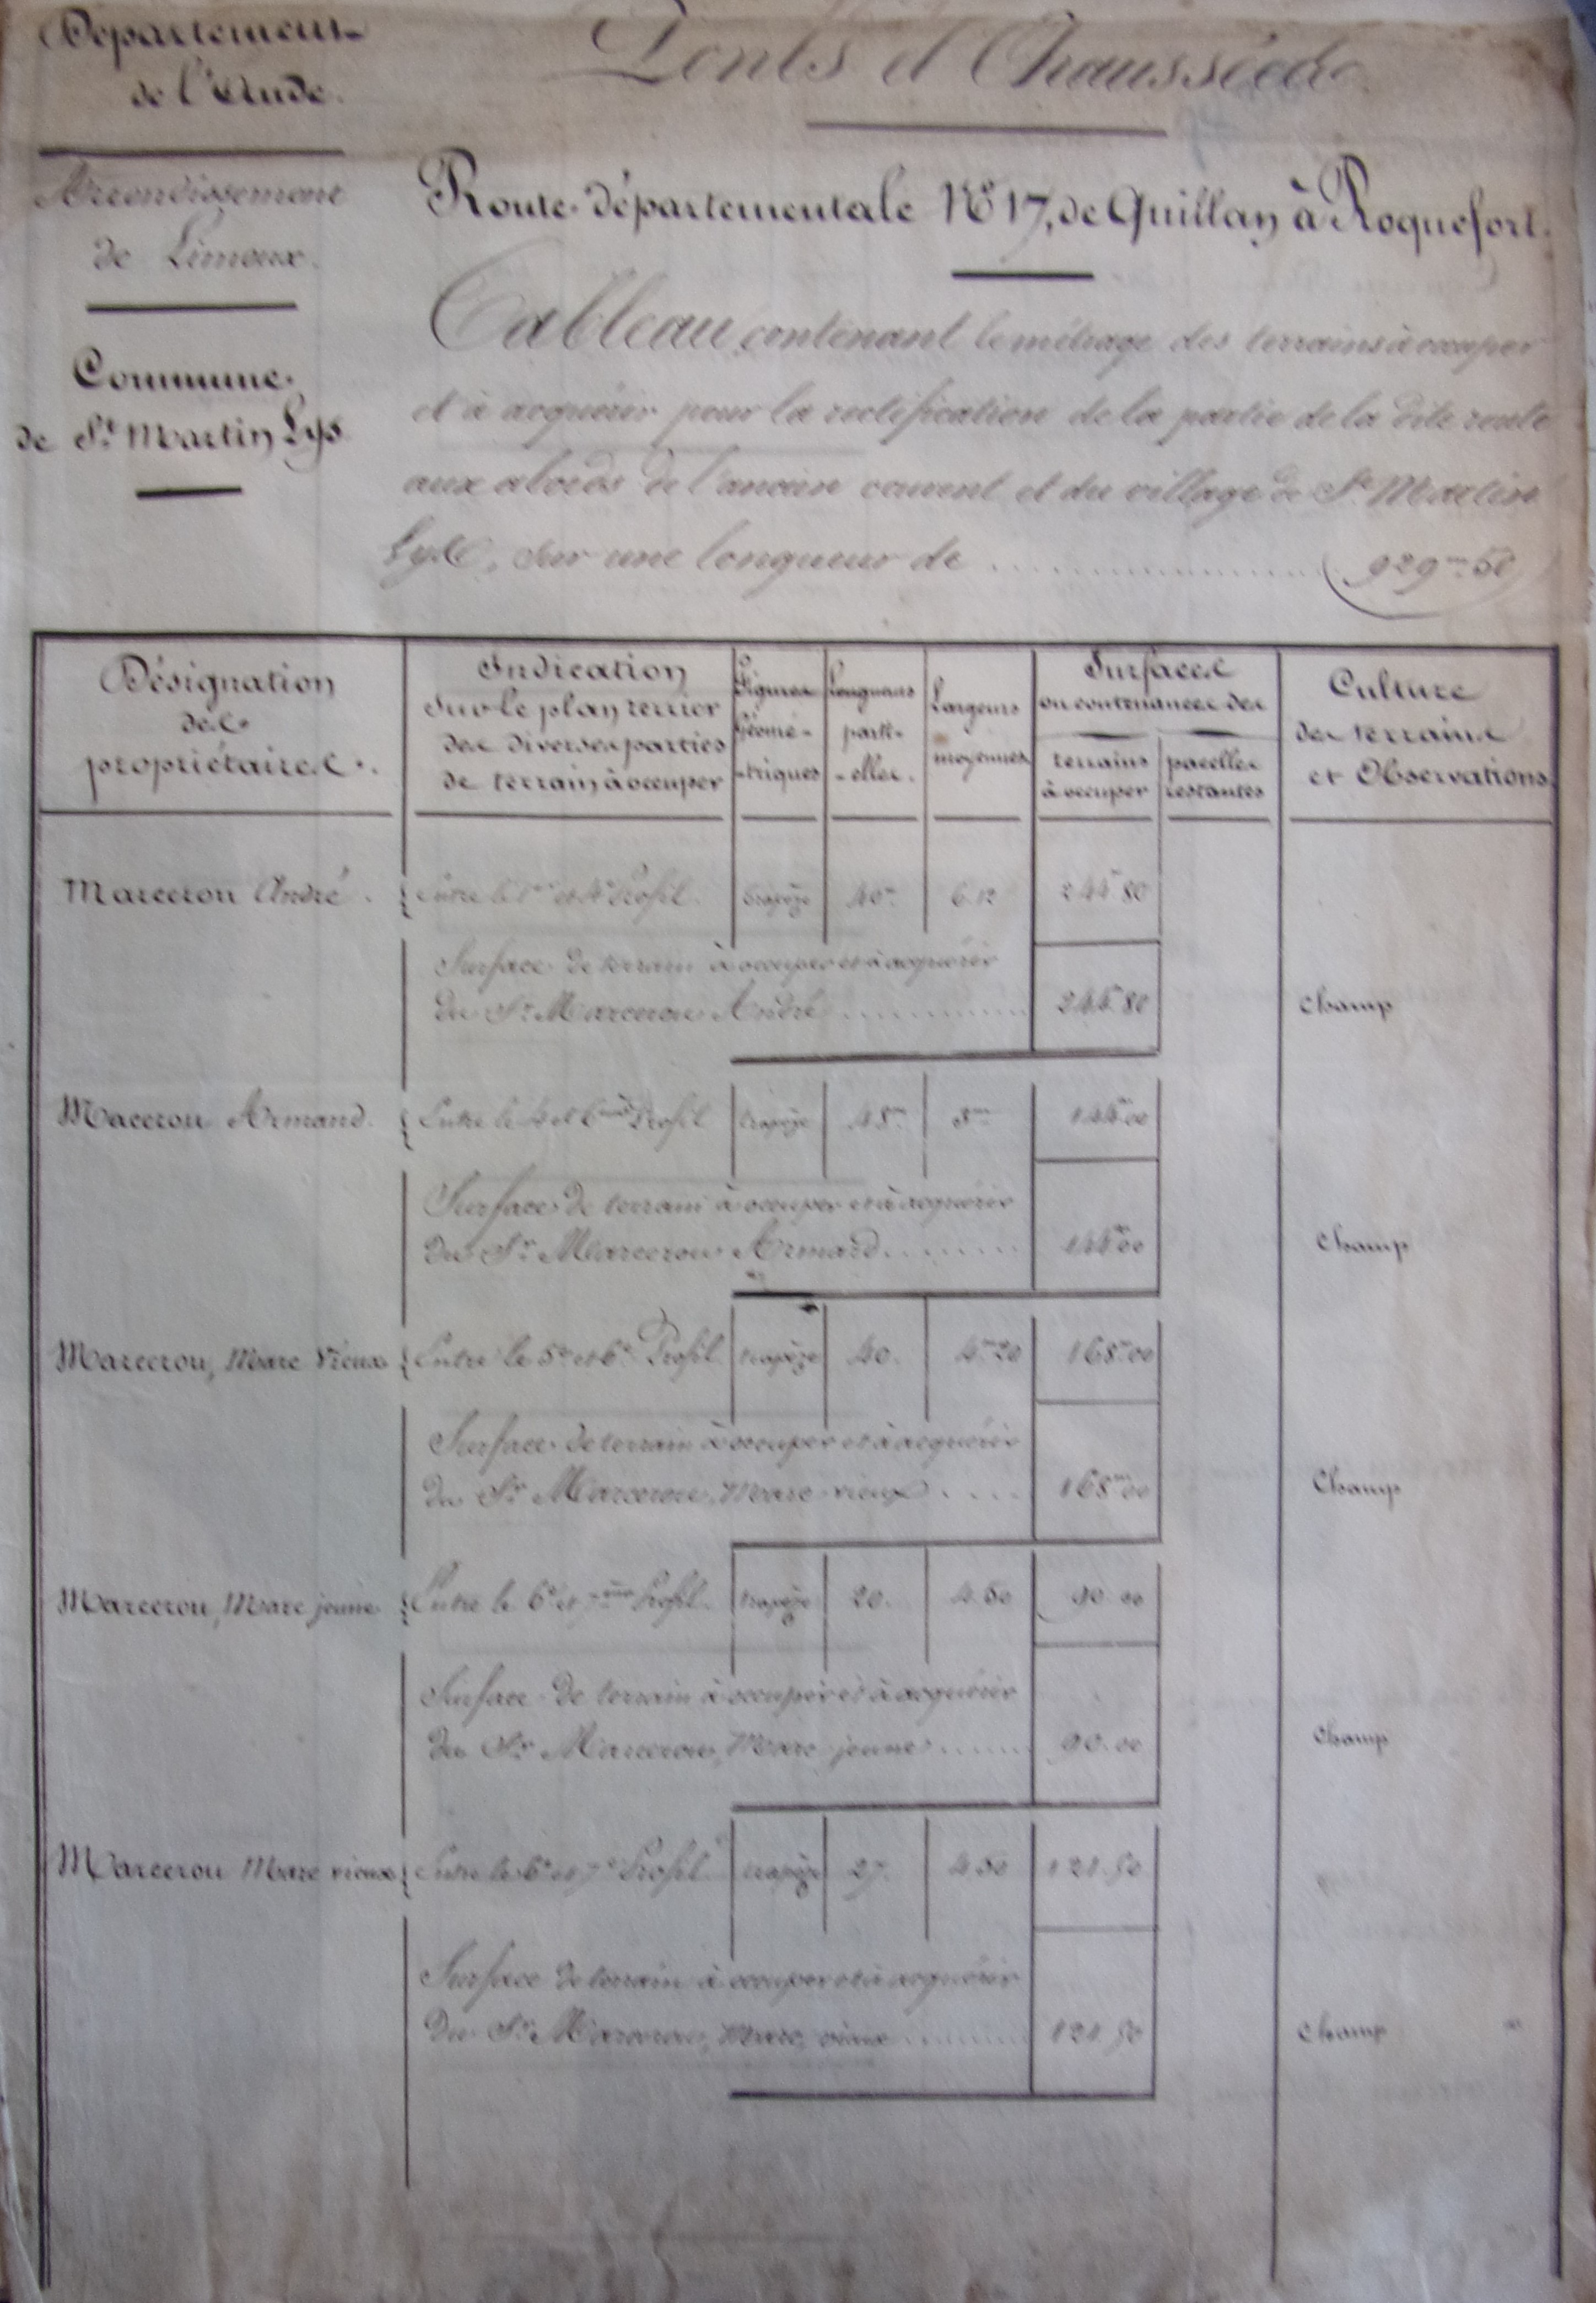 Département
de l'Aude.
Ponts et Chaussées
Arrondissement
de Limoux.
Route départementale N° 17, de Quillan à Roquefort.
Commune
de St Martin Lys
Tableau contenant le métrage des terrains à occuper
et à acquérir pour la rectification de la partie de la dite route
aux abords de l'ancien couvent et du village de St Martin
Lys, sur une longueur de ........ (929m.50)
Désignation
des
propriétaires.
Indication
sur le plan terrier
des diverses parties
de terrain à occuper
Figures
Géomé-
-triques
Longueurs
parti-
-elles.
Largeurs
moyennes
Surfaces
ou contenances des
terrains
à occuper
parcelles
restantes
Culture
des terrains
et Observations.
Marcerou André. Entre le 1er et 4e Profil. trapèze 40m 6.12 244.80
Surface de terrain à occuper et à acquérir
du Sr Marcerou André ........ 244.80 Champ
Macerou Armand. Entre le 4 et Profil trapèze 48m 3m 144.00
Surface de terrain à occuper et à acquérir
du Sr Marcerou Armand ........ 144.00 Champ
Marcerou, Marc Vieux Entre le 5e et 6e Profil trapèze 40. 4m20 168m00
Surface de terrain à occuper et à acquérir
du Sr Marcerou, Marc vieux .... 168m00 Champ
Marcerou, Marc jeune Entre le 6e et 7ème Profil. trapèze 20. 4.50 90.00
Surface de terrain à occuper et à acquérir
du Sr Marcerou, Marc jeune ...... 90.00 Champ
Marcerou Marc vieux Entre le 6e et 7e Profil trapèze 27. 4.50 121.50
Surface de terrain à occuper et à acquérir
du Sr Marcerou, Marc, vieux ........ 121.50 Champ